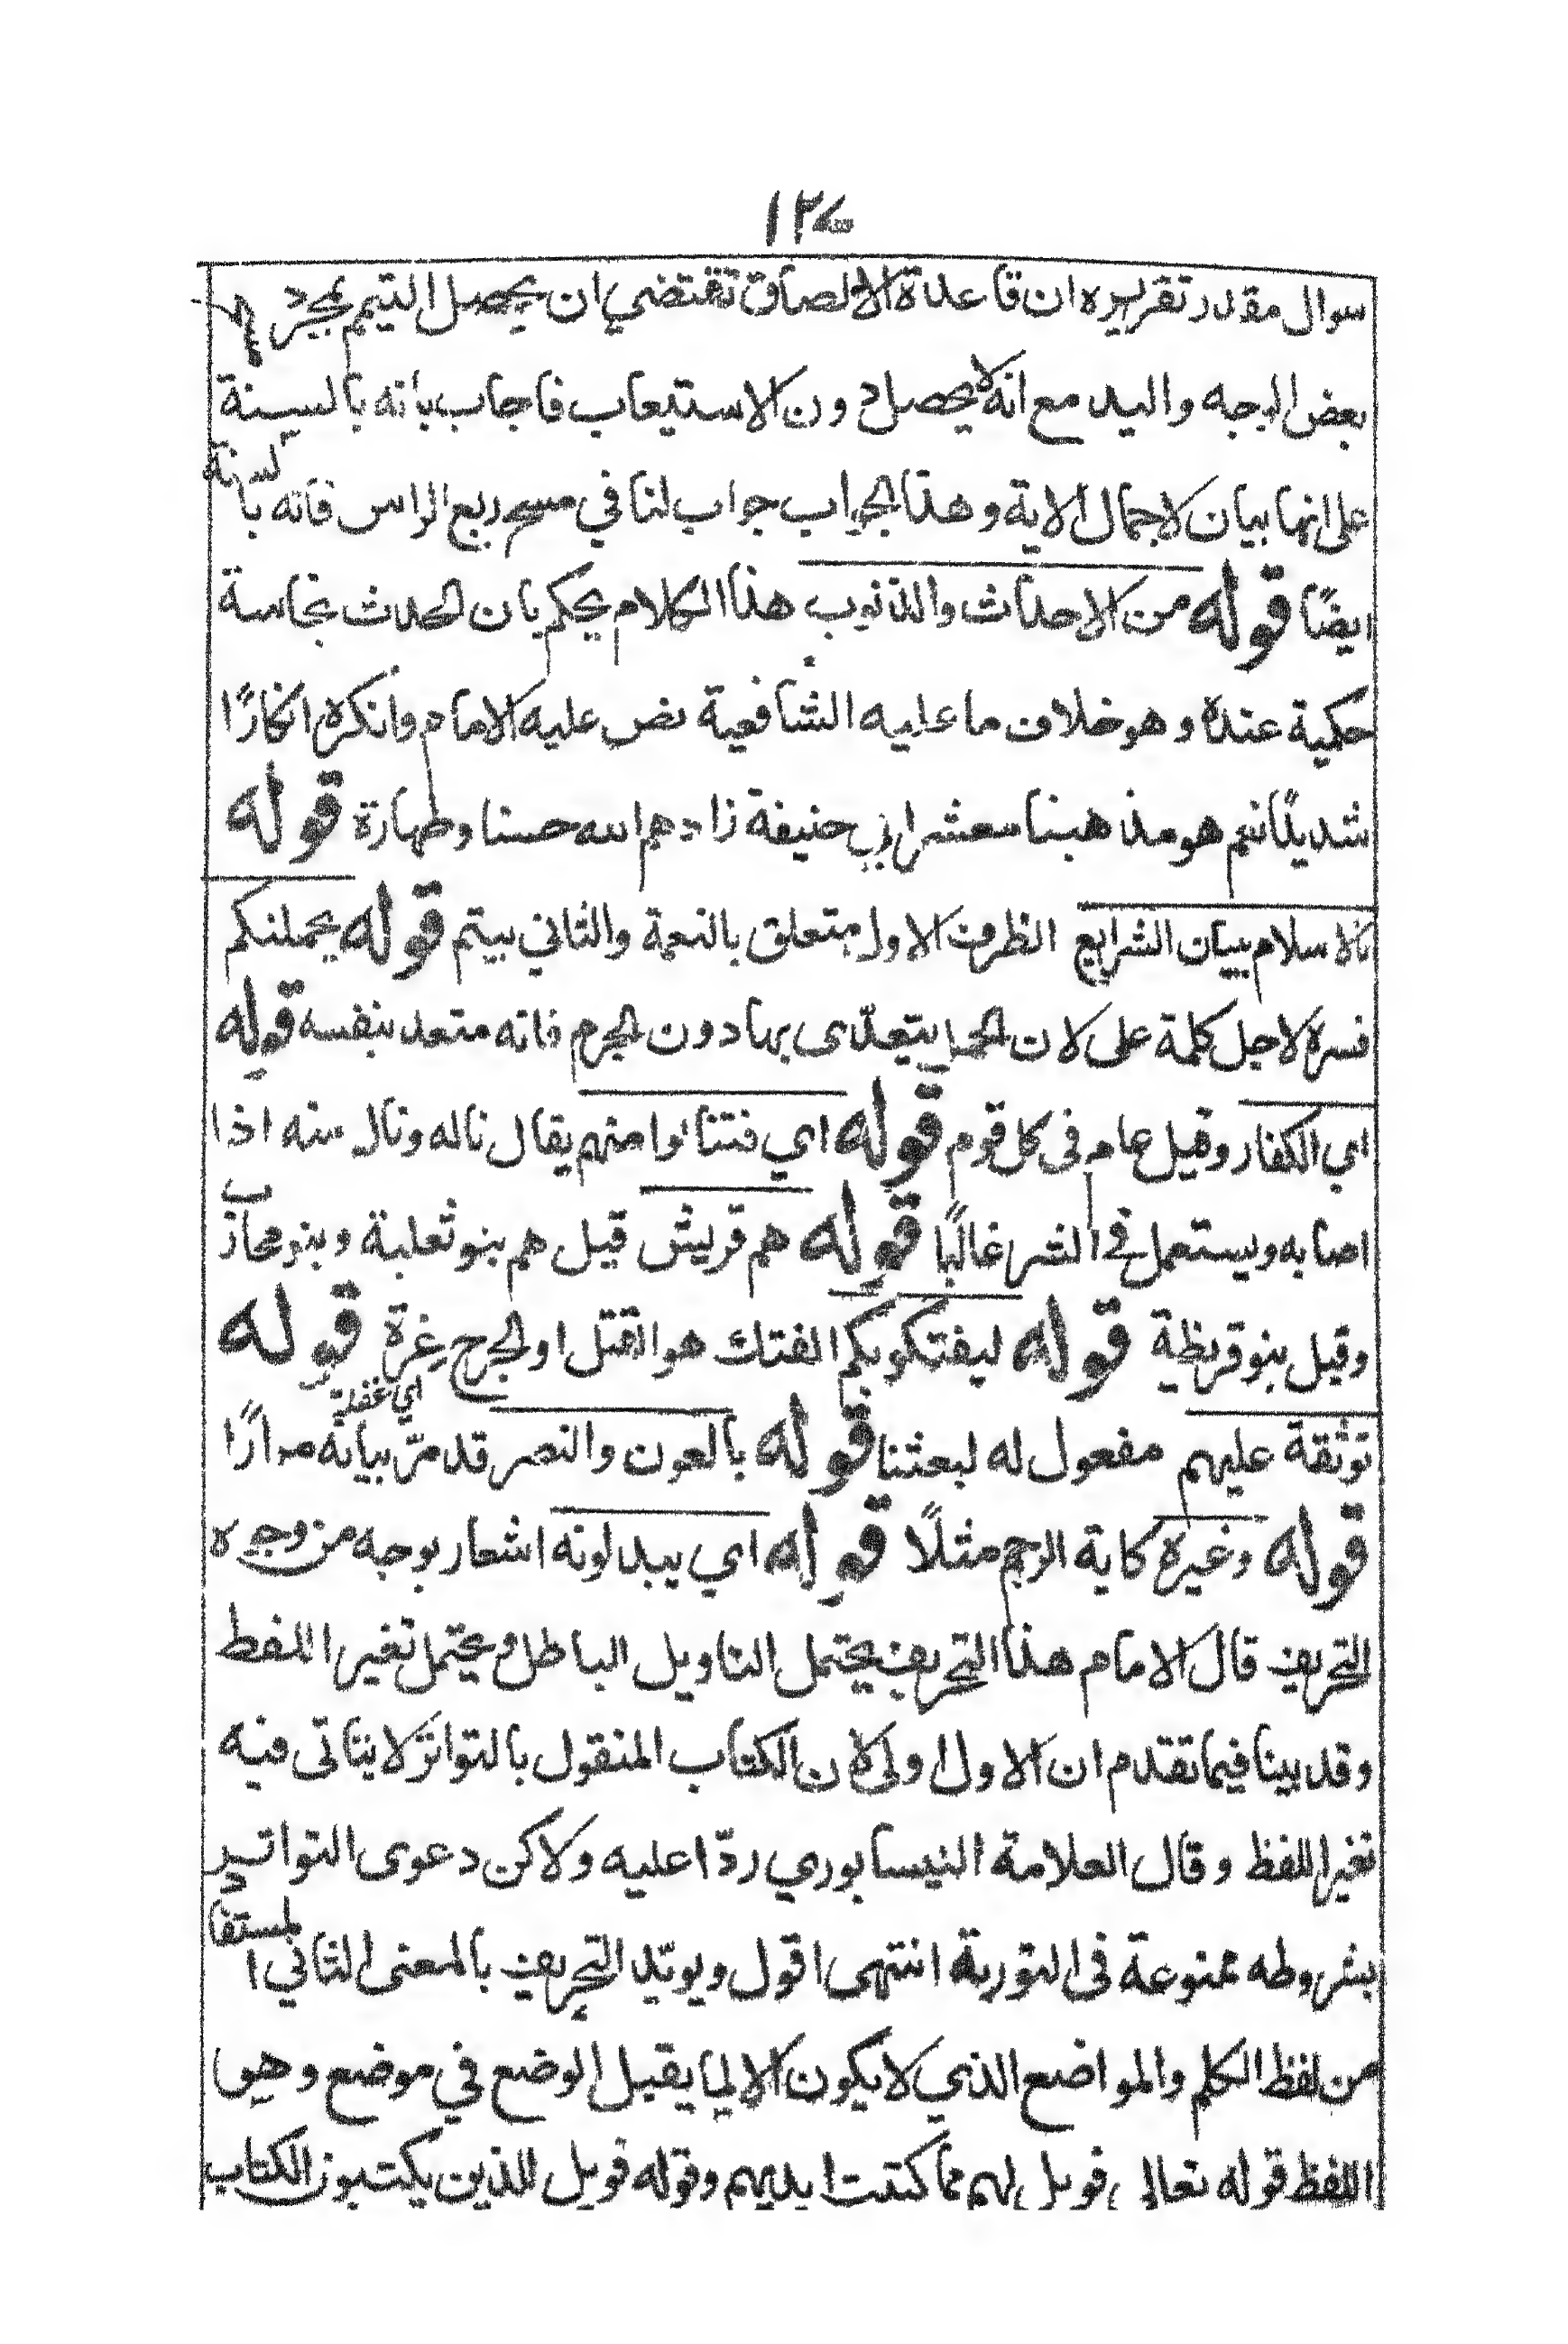 ١٢٧
سوال مقدر تقريره ان قاعدة الالصاق تقتضي ان يحصل التيمم بمجرد
بعض الوجه واليد مع انه لا يحصل دون الاستيعاب فاجاب بانه بالسنة
على انها بيان لاجمال الاية وهذا الجواب جواب لنا في مسح ربع الراس فانه بالسنة
ايضًا قوله من الاحداث والذنوب هذا الكلام يحكم بان الحدث نجاسة
حكمية عنده وهو خلاف ما عليه الشافعية نص عليه الامام وانكره انكارًا
شديدًا نعم هو مذهبنا معشر ابي حنيفة زادهم الله حسنا وطهارة قوله
بالاسلام ببيان الشرايع الظرف الاول متعلق بالنعمة والثاني بيتم قوله يحملنكم
فسره لاجل كلمة على لان الحمل يتعدّى بها دون الجرم فانه متعد بنفسه قوله
اي الكفار وقيل عام في كل قوم قوله اي فتنالوا منهم يقال ناله ونال منه اذا
اصابه ويستعمل في الشر غالبًا قوله هم قريش قيل هم بنو ثعلبة وبنو محارب
وقيل بنو قريظة قوله ليفتكوبكم الفتك هو القتل او الجرح غرة قوله
اي غفلة
توثقة عليهم مفعول له لبعثنا قوله بالعون والنصر قد مرّ بيانه مرارًا
قوله وغيره كاية الرجم مثلًا قوله اي يبدلونه اشعار بوجه من وجوه
التحريف قال الامام هذا التحريف يحتمل التاويل الباطل ويحتمل تغير اللفط
وقد بينا فيما تقدم ان الاول اولى لان الكتاب المنقول بالتواتر لا يتاتى فيه
تغير اللفظ وقال العلامة النيسابوري ردّا عليه ولاكن دعوى التواتر
بشروطه ممنوعة في التورية انتهى اقول ويويّد التحريف بالمعنى الثاني المستفاد
من لفظ الكلم والمواضع الذي لا يكون الا لما يقبل الوضع في موضع وهو
اللفظ قوله تعالى فويل لهم مما كتبت ايديهم وقوله فويل للذين يكتبون الكتاب